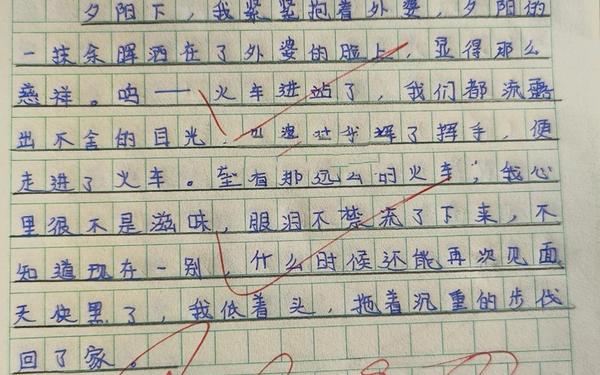 夕阳下，我紧紧抱着外婆，夕阳的
一抹余晖洒在了外婆的脸上，显得那么
慈祥。呜——火车进站了，我们都流露
出不舍的目光，外婆对我挥了挥手，便
走进了火车。望着那远去的火车，我心
里很不是滋味，眼泪不禁流了下来，不
知道现在一别，什么时候还能再次见面
天快黑了，我低着头，拖着沉重的步伐
回了家。